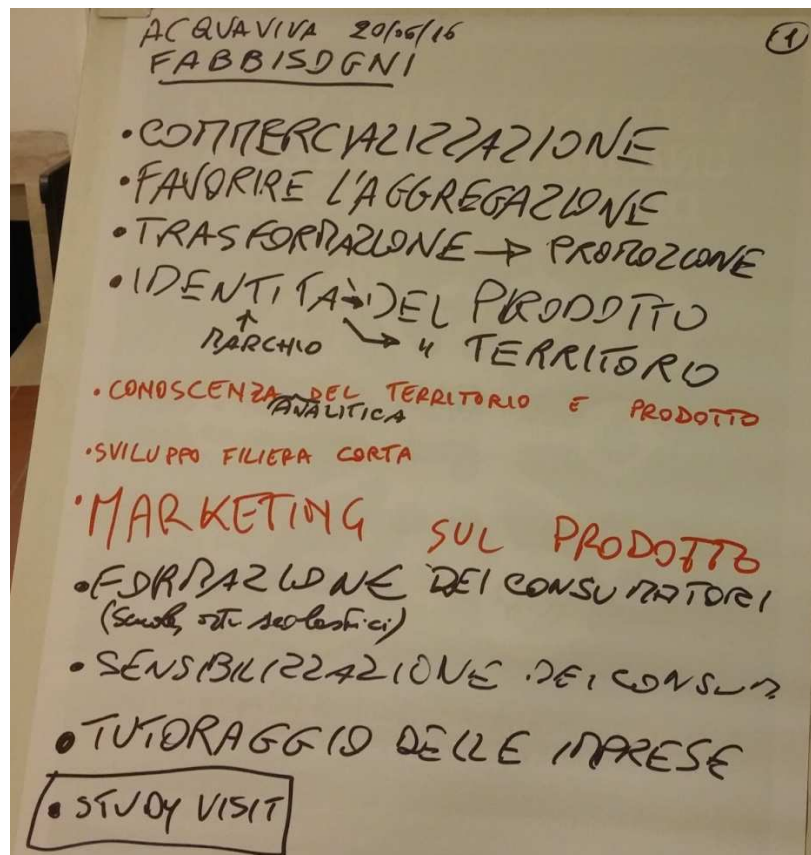 ACQUAVIVA 20/06/16
①
FABBISOGNI
• COMMERCIALIZZAZIONE
• FAVORIRE L'AGGREGAZIONE
• TRASFORMAZIONE → PROMOZIONE
• IDENTITÀ → DEL PRODOTTO
↑ MARCHIO → " TERRITORIO
• CONOSCENZA DEL TERRITORIO E PRODOTTO
ANALITICA
• SVILUPPO FILIERA CORTA
• MARKETING SUL PRODOTTO
• FORMAZIONE DEI CONSUMATORI
(scuole, orti scolastici)
• SENSIBILIZZAZIONE DEI CONSUM
• TUTORAGGIO DELLE IMPRESE
• STUDY VISIT